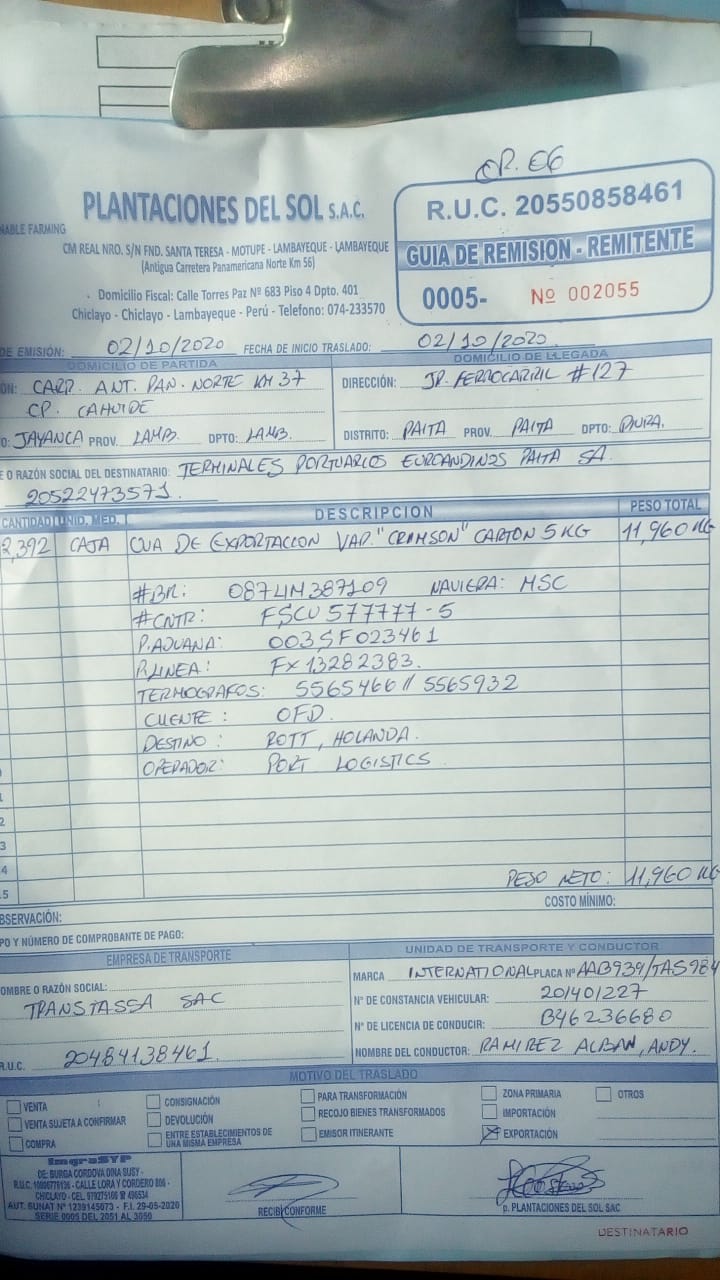 CR. 06
NABLE FARMING
PLANTACIONES DEL SOL S.A.C.
CM REAL NRO. S/N FND. SANTA TERESA - MOTUPE - LAMBAYEQUE - LAMBAYEQUE
(Antigua Carretera Panamericana Norte Km 56)
Domicilio Fiscal: Calle Torres Paz Nº 683 Piso 4 Dpto. 401
Chiclayo - Chiclayo - Lambayeque - Perú - Telefono: 074-233570
R.U.C. 20550858461
GUIA DE REMISION - REMITENTE
0005- Nº 002055
DE EMISIÓN: 02/10/2020 FECHA DE INICIO TRASLADO: 02/10/2020
DOMICILIO DE PARTIDA DOMICILIO DE LLEGADA
ÓN: CARR. ANT. PAN. NORTE KM 37
CP. CAHUIDE
O: JAYANCA PROV. LAMB. DPTO: LAMB.
DIRECCIÓN: JR. FERROCARRIL #127
DISTRITO: PAITA PROV. PAITA DPTO: PIURA.
E O RAZÓN SOCIAL DEL DESTINATARIO: TERMINALES PORTUARIOS EUROANDINOS PAITA SA.
20522473571.
CANTIDAD UNID. MED. DESCRIPCION PESO TOTAL
2,392 CAJA UVA DE EXPORTACION VAR. "CRIMSON" CARTON 5 KG 11,960 KG
#BK: 087LIM387109 NAVIERA: MSC
#CNTR: FSCU 577777-5
P. ADUANA: 003SF023461
P. LINEA: FX13282383.
TERMOGRAFOS: 5565466 // 5565932
CLIENTE: OFD.
DESTINO: ROTT, HOLANDA.
OPERADOR: PORT LOGISTICS
1
2
3
4
5
PESO NETO: 11,960 KG
BSERVACIÓN: COSTO MÍNIMO:
PO Y NÚMERO DE COMPROBANTE DE PAGO:
EMPRESA DE TRANSPORTE
OMBRE O RAZÓN SOCIAL:
TRANSTASSA SAC
R.U.C. 20484138461.
UNIDAD DE TRANSPORTE Y CONDUCTOR
MARCA INTERNATIONAL PLACA Nº AAB939/TAS984
N° DE CONSTANCIA VEHICULAR: 201401227
N° DE LICENCIA DE CONDUCIR: B46236680
NOMBRE DEL CONDUCTOR: RAMIREZ ALBAN, ANDY.
MOTIVO DEL TRASLADO
VENTA
VENTA SUJETA A CONFIRMAR
COMPRA
CONSIGNACIÓN
DEVOLUCIÓN
ENTRE ESTABLECIMIENTOS DE
UNA MISMA EMPRESA
PARA TRANSFORMACIÓN
RECOJO BIENES TRANSFORMADOS
EMISOR ITINERANTE
ZONA PRIMARIA
IMPORTACIÓN
EXPORTACIÓN
OTROS
ImgraSYP
DE: BURGA CORDOVA DINA SUSY -
CALLE LORA Y CORDERO 806 -
CHICLAYO - CEL. 979275166
AUT. SUNAT Nº 1239145073 - F.I. 29-05-2020
SERIE 0005 DEL 2051 AL 3050
RECIBI CONFORME
p. PLANTACIONES DEL SOL SAC
DESTINATARIO